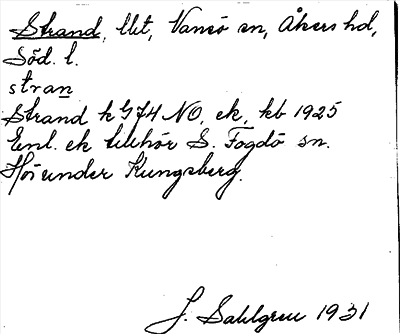 Strand, lht, Vansö sn, Åkers hd,
Söd. l.
stran
Strand k G74 NO, ek, kb 1925
Enl. ek tillhör S. Fogdö sn.
Hör under Kungsberg.
J. Sahlgren 1931